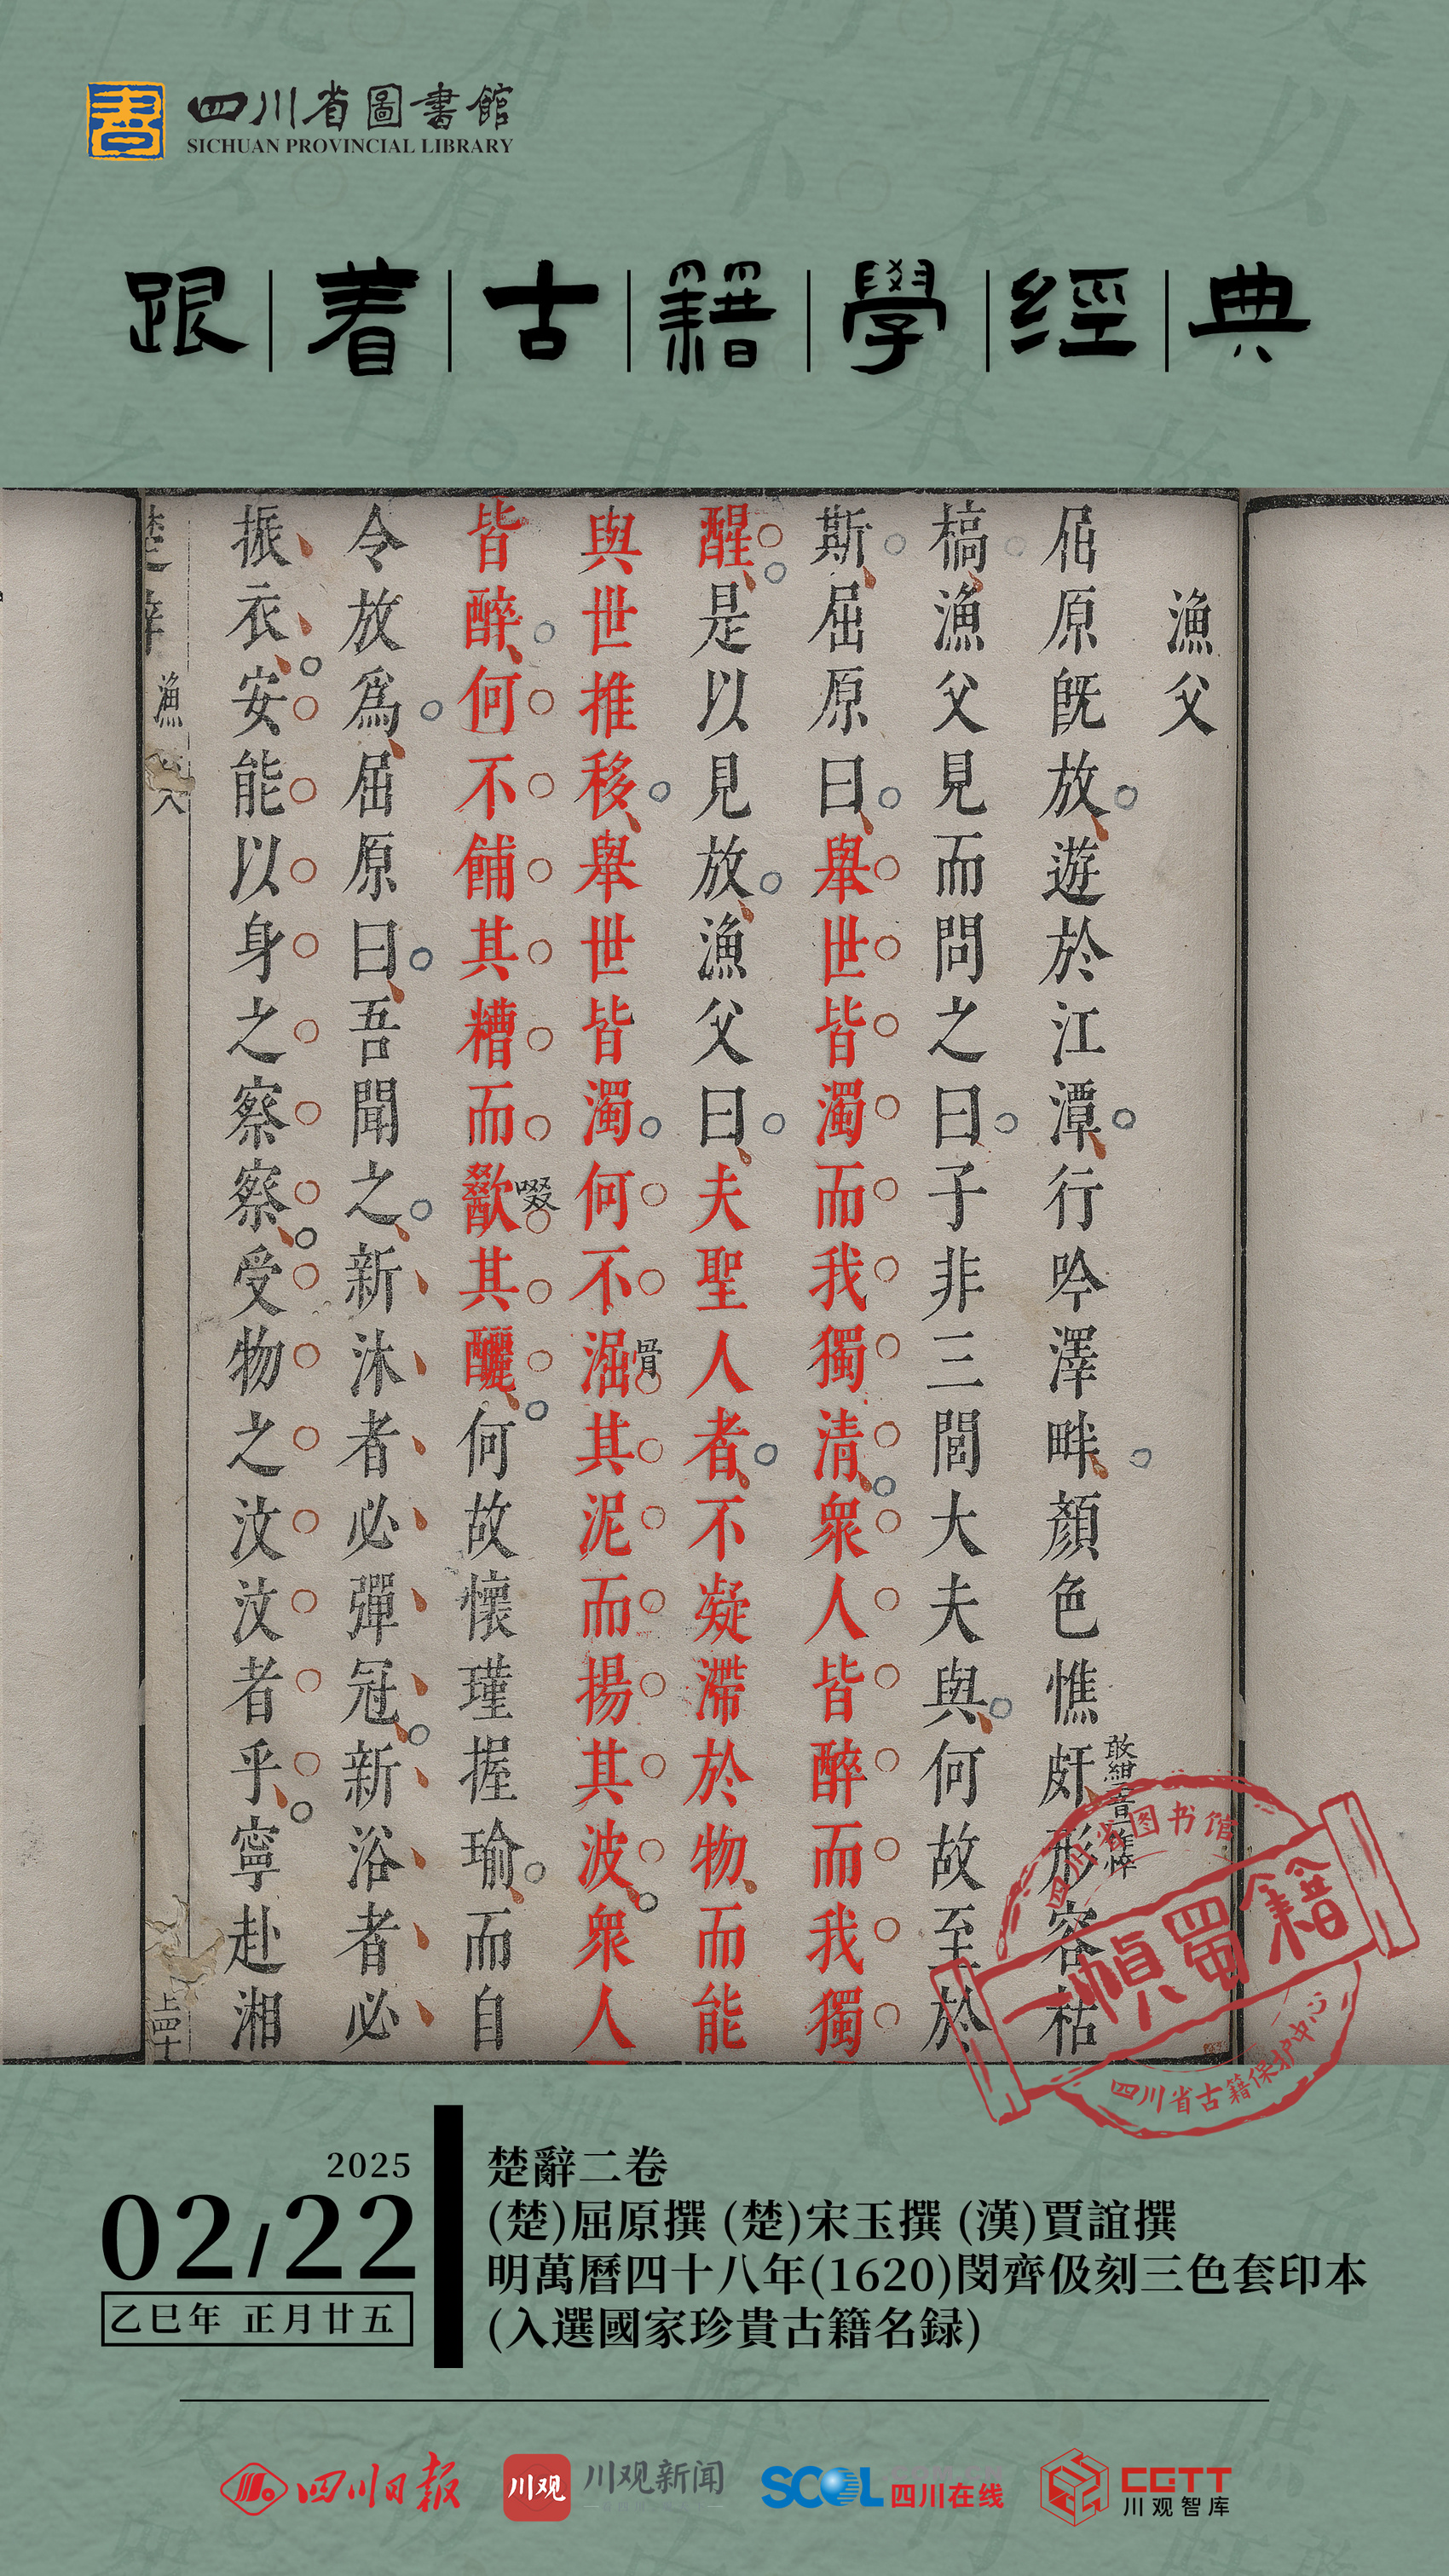 書
四川省圖書館
SICHUAN PROVINCIAL LIBRARY
跟着古籍學經典
漁父
屈原既放遊於江潭行吟澤畔顏色憔䵟形容枯
槁漁父見而問之曰子非三閭大夫與何故至於
斯屈原曰舉世皆濁而我獨清衆人皆醉而我獨
醒是以見放漁父曰夫聖人者不凝滯於物而能
與世推移舉世皆濁何不淈其泥而揚其波衆人
皆醉何不餔其糟而歠其釃何故懷瑾握瑜而自
令放為屈原曰吾聞之新沐者必彈冠新浴者必
振衣安能以身之察察受物之汶汶者乎寧赴湘
骨
啜
漁
四川省图书馆
一幀蜀籍
四川省古籍保护中心
2025
02/22
乙巳年 正月廿五
楚辭二卷
(楚)屈原撰 (楚)宋玉撰 (漢)賈誼撰
明萬曆四十八年(1620)閔齊伋刻三色套印本
(入選國家珍貴古籍名録)
四川日报
川观
川观新闻
SCOL
四川在线
CGTT
川观智库